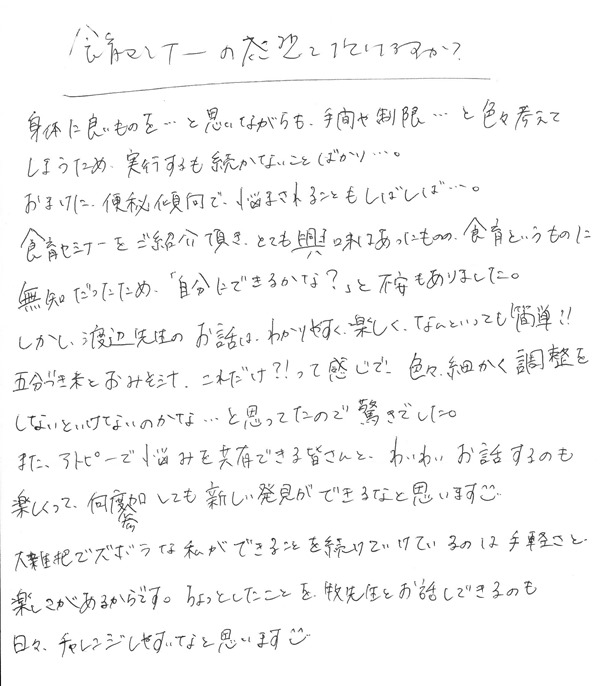 食育セミナーの感想を頂けますか?
身体に良いものを…と思いながらも、手間や制限…と色々考えて
しまうため、実行するも続かないことばかり…。
おまけに、便秘傾向で、悩まされることもしばしば…。
食育セミナーをご紹介頂き、とても興味はあったものの、食育というものに
無知だったため、「自分にできるかな?」と不安もありました。
しかし、渡辺先生のお話は、わかりやすく、楽しく、なんといっても簡単!!
五分づき米とおみそ汁、これだけ?!って感じで! 色々、細かく調整を
しないといけないのかな…と思ってたので驚きでした。
また、アトピーで悩みを共有できる皆さんと、わいわいお話するのも
楽しくって、何度参加しても新しい発見ができるなと思います☺
大雑把でズボラな私ができることを続けていけているのは手軽さと
楽しさがあるからです。ちょっとしたことを、牧先生とお話しできるのも
日々、チャレンジしやすいなと思います☺